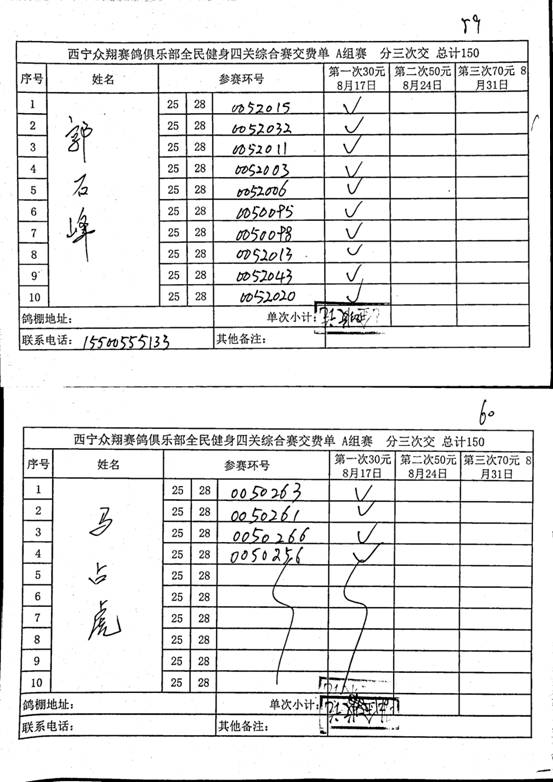 59
西宁众翔赛鸽俱乐部全民健身四关综合赛交费单 A组赛 分三次交 总计150
序号 姓名 参赛环号 第一次30元 8月17日 第二次50元 8月24日 第三次70元 8月31日
郭石峰
1 25 28 0052015 ✓
2 25 28 0052032 ✓
3 25 28 0052011 ✓
4 25 28 0052003 ✓
5 25 28 0052006 ✓
6 25 28 0050095 ✓
7 25 28 0050098 ✓
8 25 28 0052013 ✓
9 25 28 0052043 ✓
10 25 28 0052020 ✓
鸽棚地址: 单次小计:
联系电话: 15500555133 其他备注:
60
西宁众翔赛鸽俱乐部全民健身四关综合赛交费单 A组赛 分三次交 总计150
序号 姓名 参赛环号 第一次30元 8月17日 第二次50元 8月24日 第三次70元 8月31日
马占虎
1 25 28 0050263 ✓
2 25 28 0050261 ✓
3 25 28 0050266 ✓
4 25 28 0050256 ✓
5 25 28
6 25 28
7 25 28
8 25 28
9 25 28
10 25 28
鸽棚地址: 单次小计:
联系电话: 其他备注: